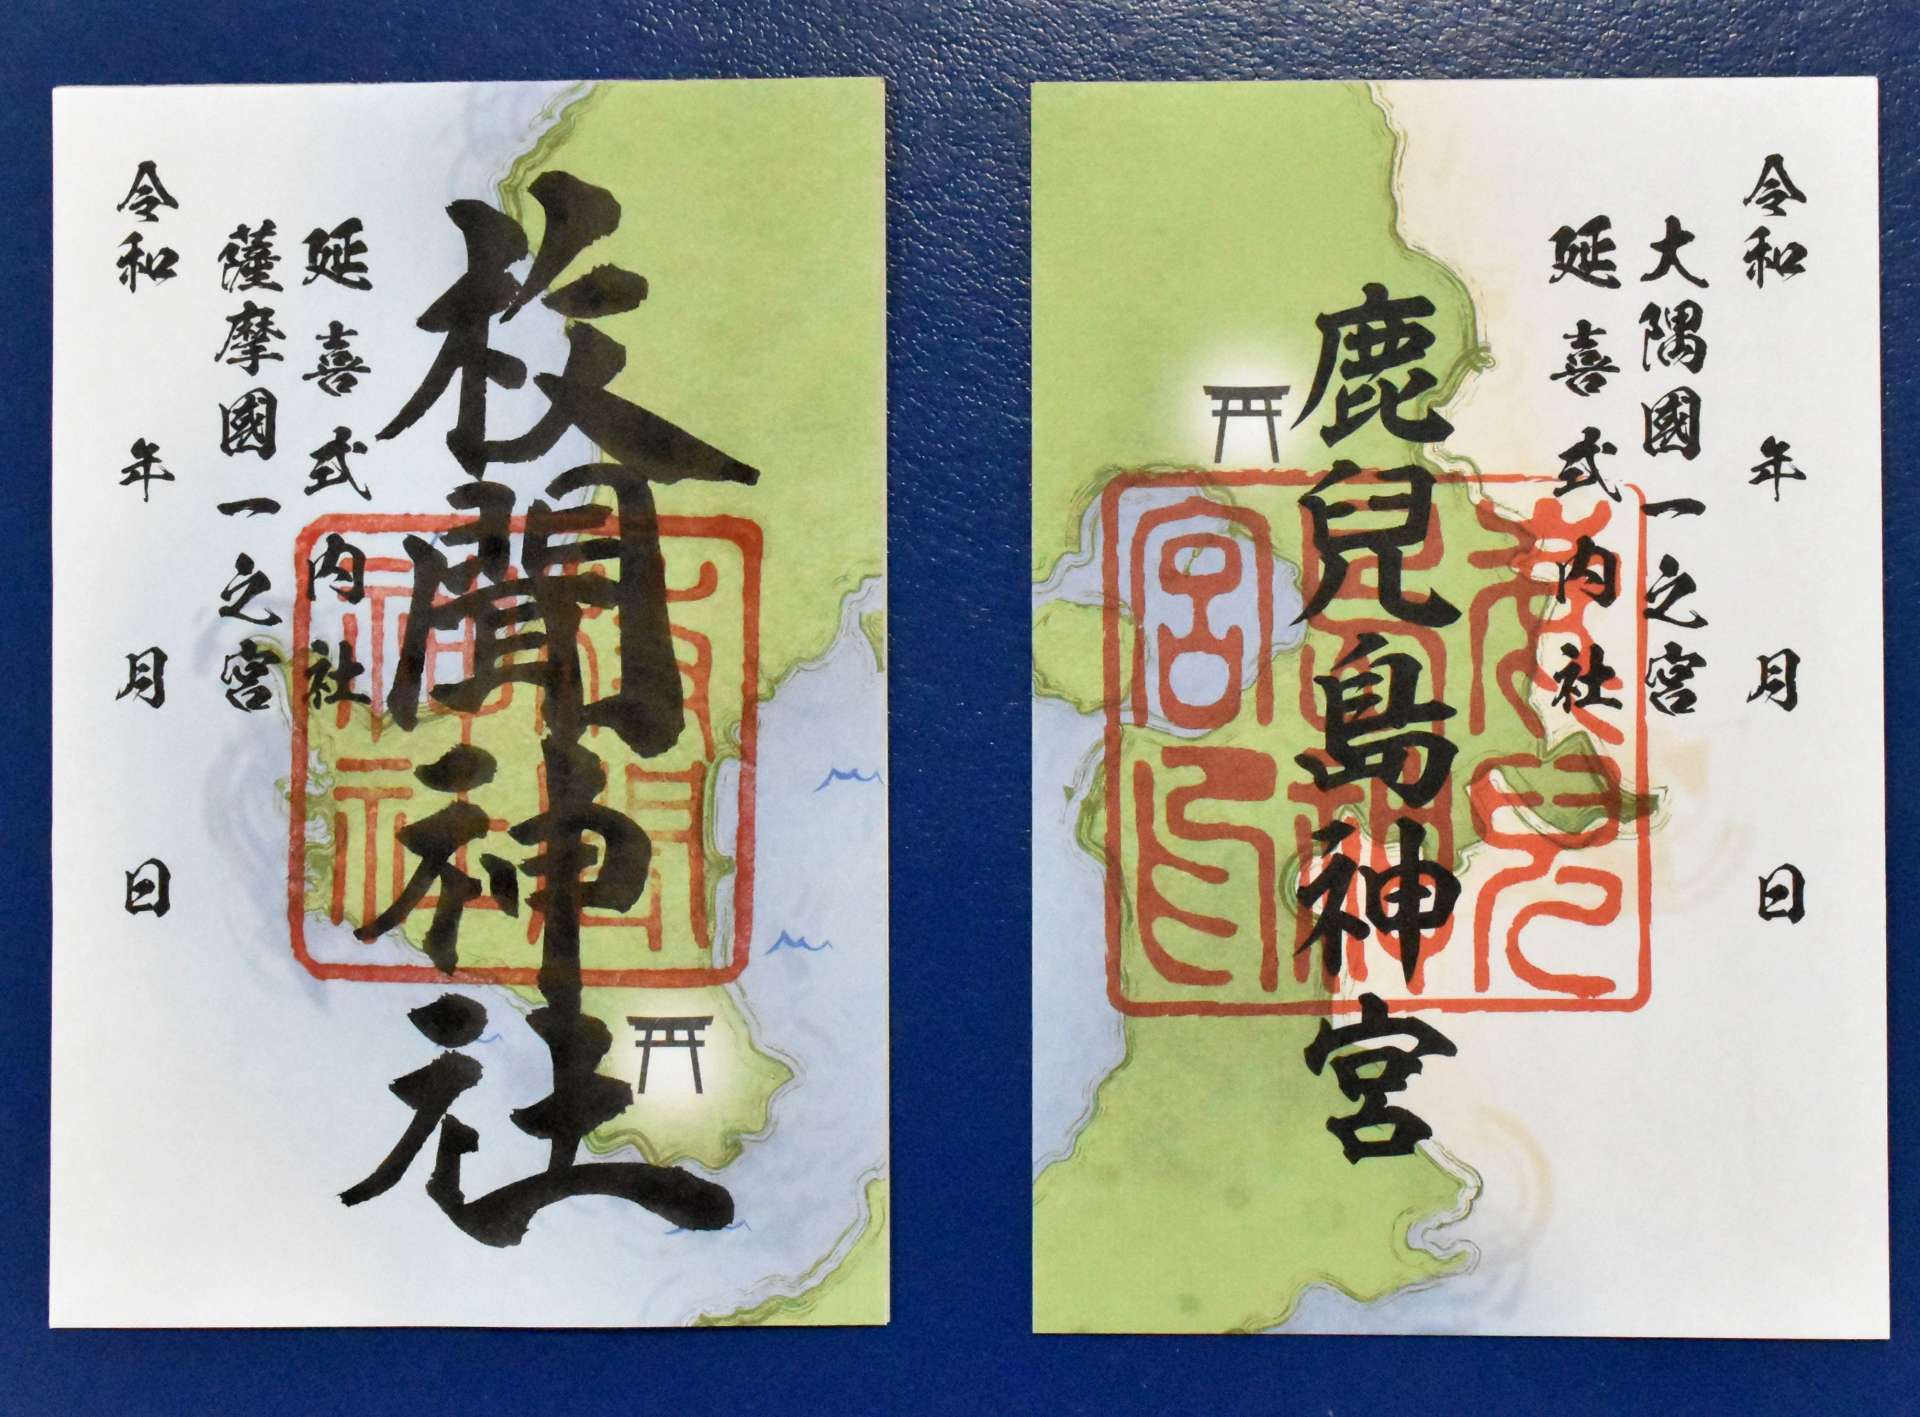 枚聞神社
延喜式内社
薩摩國一之宮
令和 年 月 日
令和 年 月 日
大隅國一之宮
延喜式内社
鹿兒島神宮
枚聞
神社